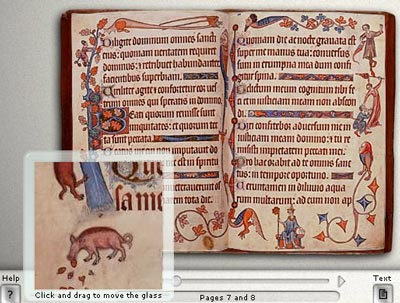 Diligite dominum omnes sancti
eius: quoniam ueritatem requiret
dominus: & retribuet habundanter
facientibus superbiam.
Uiriliter agite & confortetur cor ues
trum omnes qui speratis in domino.
Beati quorum remisse sunt
iniquitates: et quorum
sunt peccata.
cui non imputauit do
nec est in spiritu
tota die.
Quoniam die ac nocte grauata est
super me manus tua: conuersus
sum in erumpna mea dum confi
gitur spina.
Delictum meum cognitum tibi feci
et iniusticiam meam non abscon
di.
Dixi confitebor aduersum me in
iusticiam meam domino: & tu re
misisti impietatem peccati mei.
Pro hac orabit ad te omnis sanc
tus: in tempore oportuno.
Ueruntamen in diluuio aqua
rum multarum: ad eum non ap
Que
same
Click and drag to move the glass
Help
?
Pages 7 and 8
Text